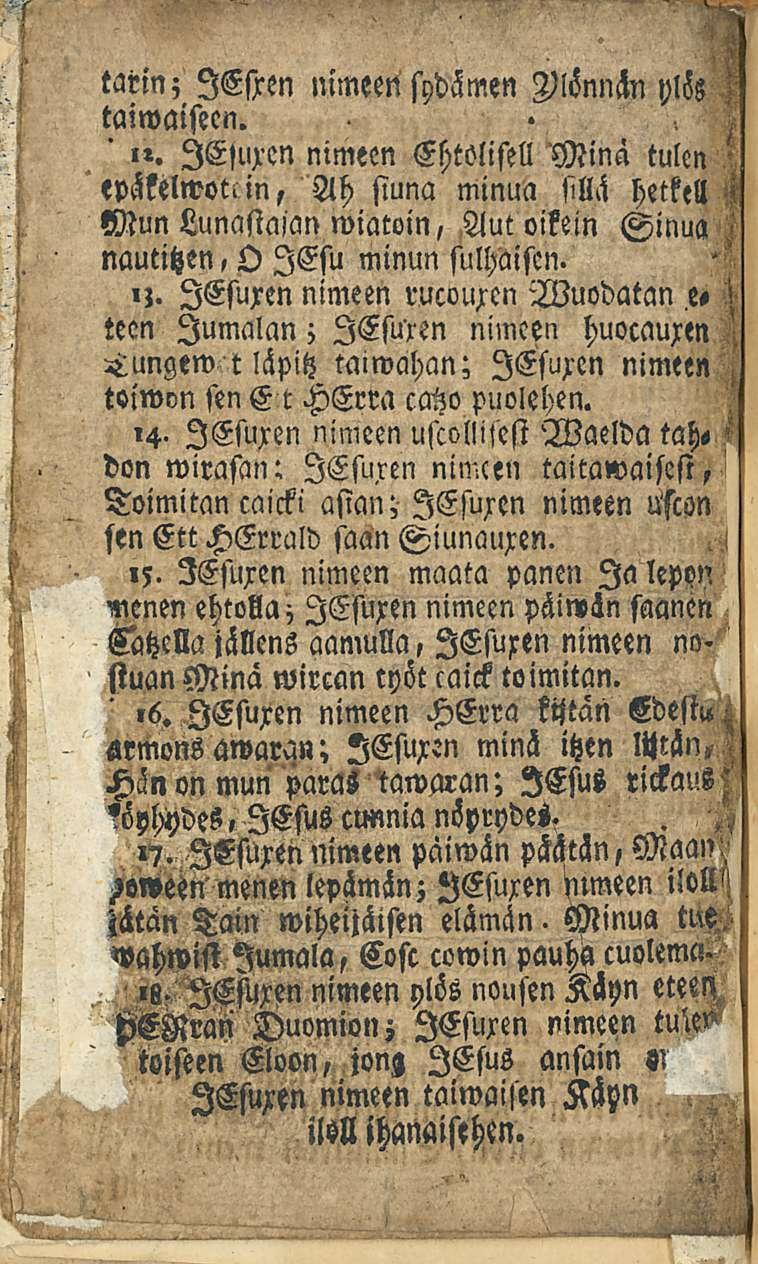 tarin; JEsxen nimeen sydämen Ylönnän ylös
taiwaiseen.
12. JEsuxen nimeen Ehtolisell Minä tulen
epäkelwotoin, Ah siuna minua sillä hetkell
Mun Lunastajan wiatoin, Aut oikein Sinua
nautitzen, O JEsu minun sulhaisen.
13. JEsuxen nimeen rucouxen Wuodatan e-
teen Jumalan; JEsuxen nimeen huocauxen
Tungewat läpitz taiwahan; JEsuxen nimeen
toiwon sen Et HErra catzo puolehen.
14. JEsuxen nimeen uscollisest Waelda tah-
don wirasan: JEsuxen nimeen taitawaisest,
Toimitan caicki asian; JEsuxen nimeen uscon
sen Ett HErrald saan Siunauxen.
15. JEsuxen nimeen maata panen Ja lepon
menen ehtolla; JEsuxen nimeen päiwän saanen
Catzella jällens aamulla, JEsuxen nimeen no-
stuan Minä wircan työt caick toimitan.
16. JEsuxen nimeen HErra kijtän Edestä
armons awaran; JEsuxen minä itzen lijtän,
Hän on mun paras tawaran; JEsus rickaus
köyhydes, JEsus cunnia nöyrydes.
17. JEsuxen nimeen päiwän päätän, Maan
poween menen lepämän; JEsuxen nimeen iloll
jätän Tain wiheijäisen elämän. Minua tue
wahwist Jumala, Cosc cowin pauha cuolema.
18. JEsuxen nimeen ylös nousen Käyn eteen
HERran Duomion; JEsuxen nimeen tulen
toiseen Eloon, jong JEsus ansain
JEsuxen nimeen taiwaisen Käyn
iloll ihanaisehen.